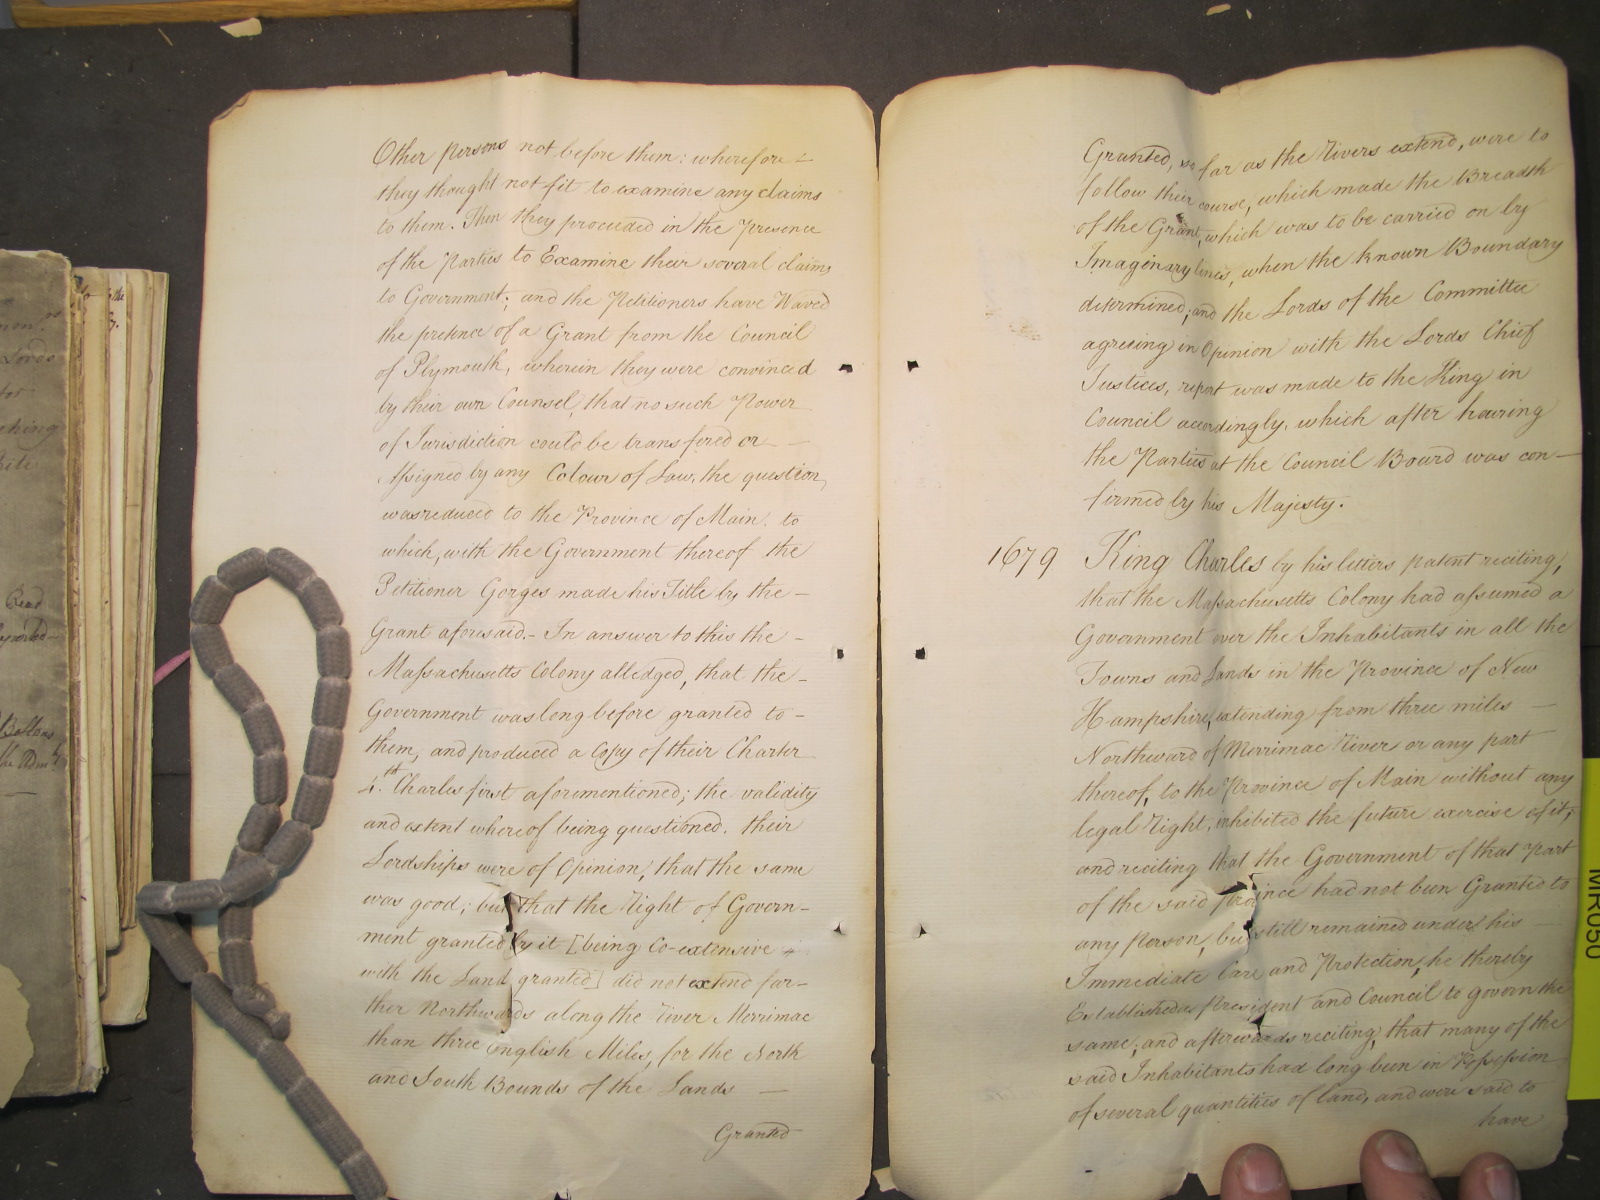 Other persons not before them: wherefore –
they thought not fit to examine any claims
to them. Then they proceeded in the Presence
of the Parties to Examine their several claims
to Government; and the Petitioners have Waved
the pretence of a Grant from the Council
of Plymouth, wherein they were convinced
by their own Counsel, that no such Power
of Jurisdiction could be transfered or –
Assigned by any Colour of Law, the question,
was reduced to the Province of Main. to
which, with the Government thereof the
Petitioner Gorges made his Title by the –
Grant aforesaid.– In answer to this the –
Massachusetts Colony alledged, that the –
Government was long before granted to –
them, and produced a Copy of their Charter
4.th Charles first aforementioned; the validity
and extent whereof being questioned. their
Lordships were of Opinion, that the same
was good; but that the Right of Govern-
ment granted by it [being Co-extensive
with the Land granted] did not extend far-
ther Northwards along the River Merrimac
than three English Miles, for the North
and South Bounds of the Lands —
Granted
Granted, so far as the Rivers extend, were to
follow their course, which made the Breadth
of the Grant, which was to be carried on by
Imaginary lines, when the known Boundary
determined; and the Lords of the Committee
agreeing in Opinion with the Lords Chief
Justices, report was made to the King in
Council accordingly, which after hearing
the Parties at the Council Board was con-
firmed by his Majesty.
1679 King Charles by his letters patent reciting,
that the Massachusetts Colony had assumed a
Government over the Inhabitants in all the
Towns and Lands in the Province of New
Hampshire, extending from three miles —
Northward of Merrimac Rivers or any part
thereof, to the Province of Main without any
legal Right, inhibited the future exercise of it;
and reciting that the Government of that Part
of the said Province had not been Granted to
any Person, but still remained under his
Immediate Care and Protection, he thereby
Established a President and Council to govern the
same; and afterwards reciting, that many of the
said Inhabitants had long been in Possession
of several quantities of land, and were said to
have
MR050